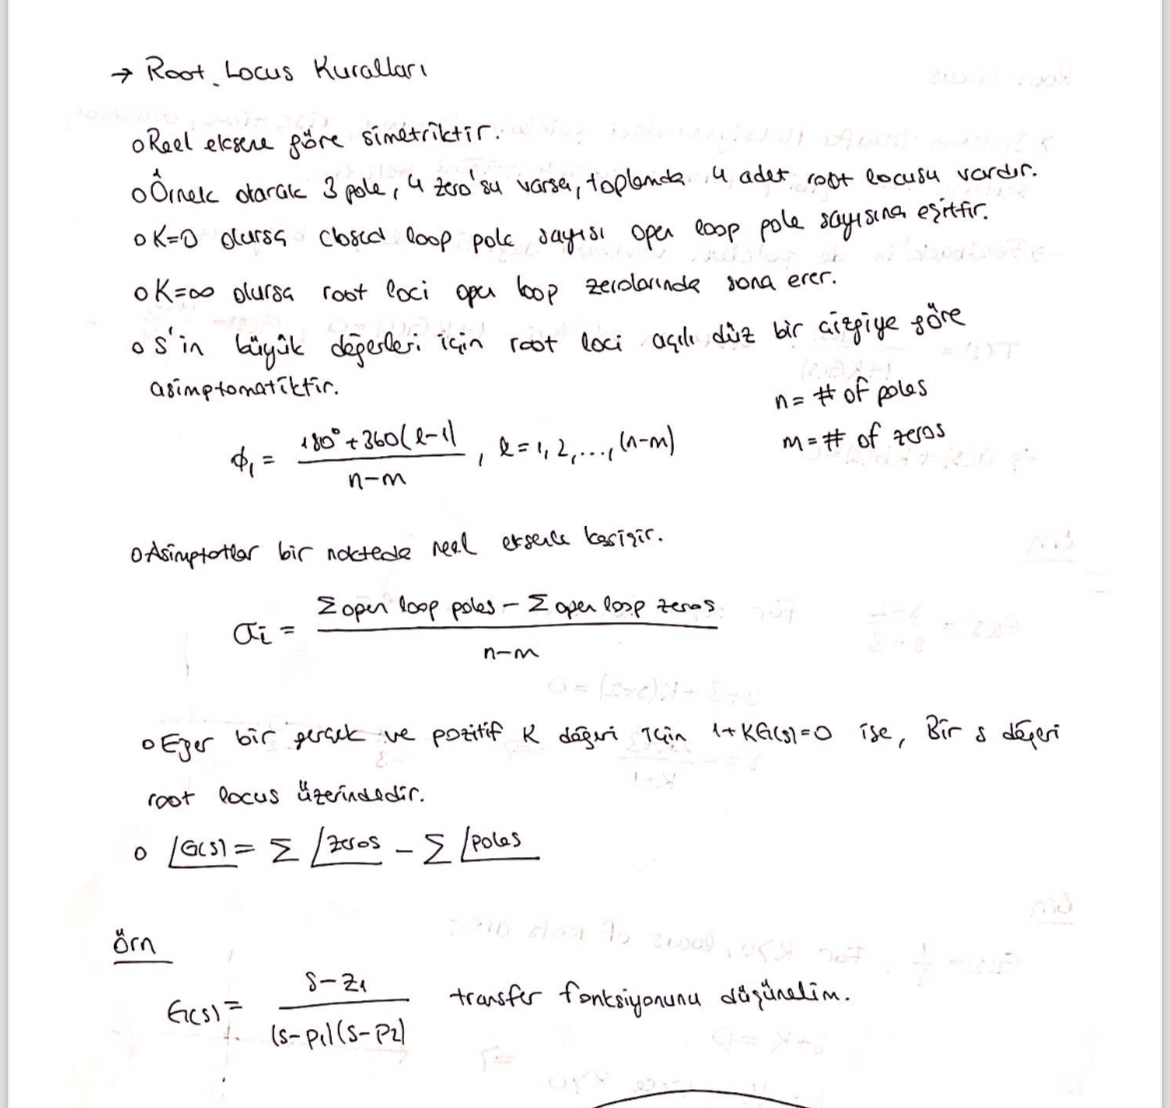 → Root Locus Kuralları
o Reel eksene göre simetriktir.
o Örnek olarak 3 pole, 4 zero'su varsa, toplamda 4 adet root locusu vardır.
o K=0 olursa closed loop pole sayısı open loop pole sayısına eşittir.
o K=∞ olursa root loci open loop zerolarında sona erer.
o S'in büyük değerleri için root loci açılı düz bir çizgiye göre
asimptomatiktir.
n = # of poles
m = # of zeros
ϕ₁ = (180° + 360(l-1)) / (n-m) , l = 1, 2, ..., (n-m)
o Asimptotlar bir noktada reel eksenle kesişir.
σi = (Σ open loop poles - Σ open loop zeros) / (n-m)
o Eğer bir gerçek ve pozitif K değeri için 1+KG(s)=0 ise, Bir s değeri
root locus üzerindedir.
o ∠G(s) = Σ ∠zeros - Σ ∠poles
Örn
G(s) = (s-z₁) / ((s-p₁)(s-p₂)) transfer fonksiyonunu düşünelim.